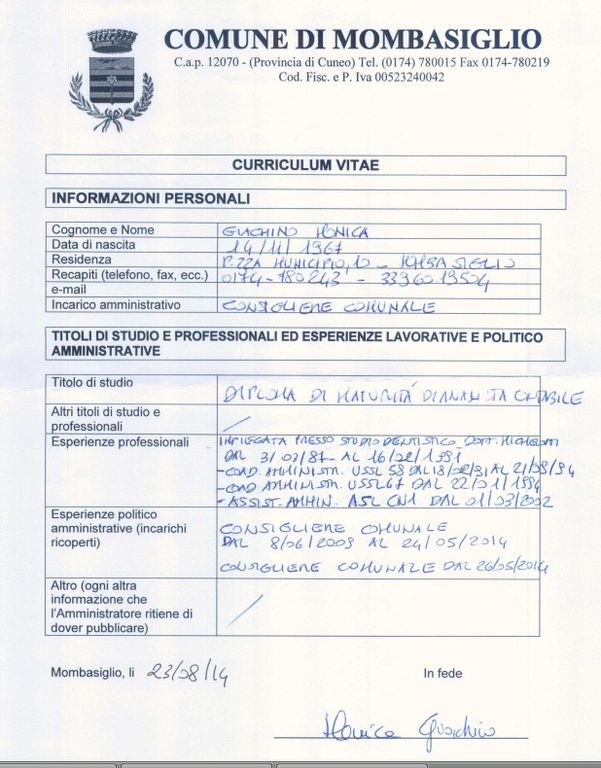 COMUNE DI MOMBASIGLIO
C.a.p. 12070 - (Provincia di Cuneo) Tel. (0174) 780015 Fax 0174-780219
Cod. Fisc. e P. Iva 00523240042
CURRICULUM VITAE
INFORMAZIONI PERSONALI
Cognome e Nome GIACHINO MONICA
Data di nascita 14/11/1967
Residenza P.ZZA MUNICIPIO, 10 - MOMBASIGLIO
Recapiti (telefono, fax, ecc.) 0174-780243 - 3396013504
e-mail
Incarico amministrativo CONSIGLIERE COMUNALE
TITOLI DI STUDIO E PROFESSIONALI ED ESPERIENZE LAVORATIVE E POLITICO
AMMINISTRATIVE
Titolo di studio DIPLOMA DI MATURITÁ DI ANALISTA CONTABILE
Altri titoli di studio e
professionali /
Esperienze professionali IMPIEGATA PRESSO STUDIO DENTISTICO DOTT.
DAL 3/03/87 - AL 16/02/1991
- COAD. AMMINISTR. USSL 58 DAL 18/02/91 AL 21/08/94
- COAD AMMINISTR. USSL 67 DAL 22/01/1994
- ASSIST. AMMIN. ASL CN1 DAL 01/03/2002
Esperienze politico
amministrative (incarichi
ricoperti)
CONSIGLIERE COMUNALE
DAL 8/06/2009 AL 24/05/2014
CONSIGLIERE COMUNALE DAL 26/05/2014
Altro (ogni altra
informazione che
l'Amministratore ritiene di
dover pubblicare) /
Mombasiglio, li 23/08/14 In fede
Monica Giachino